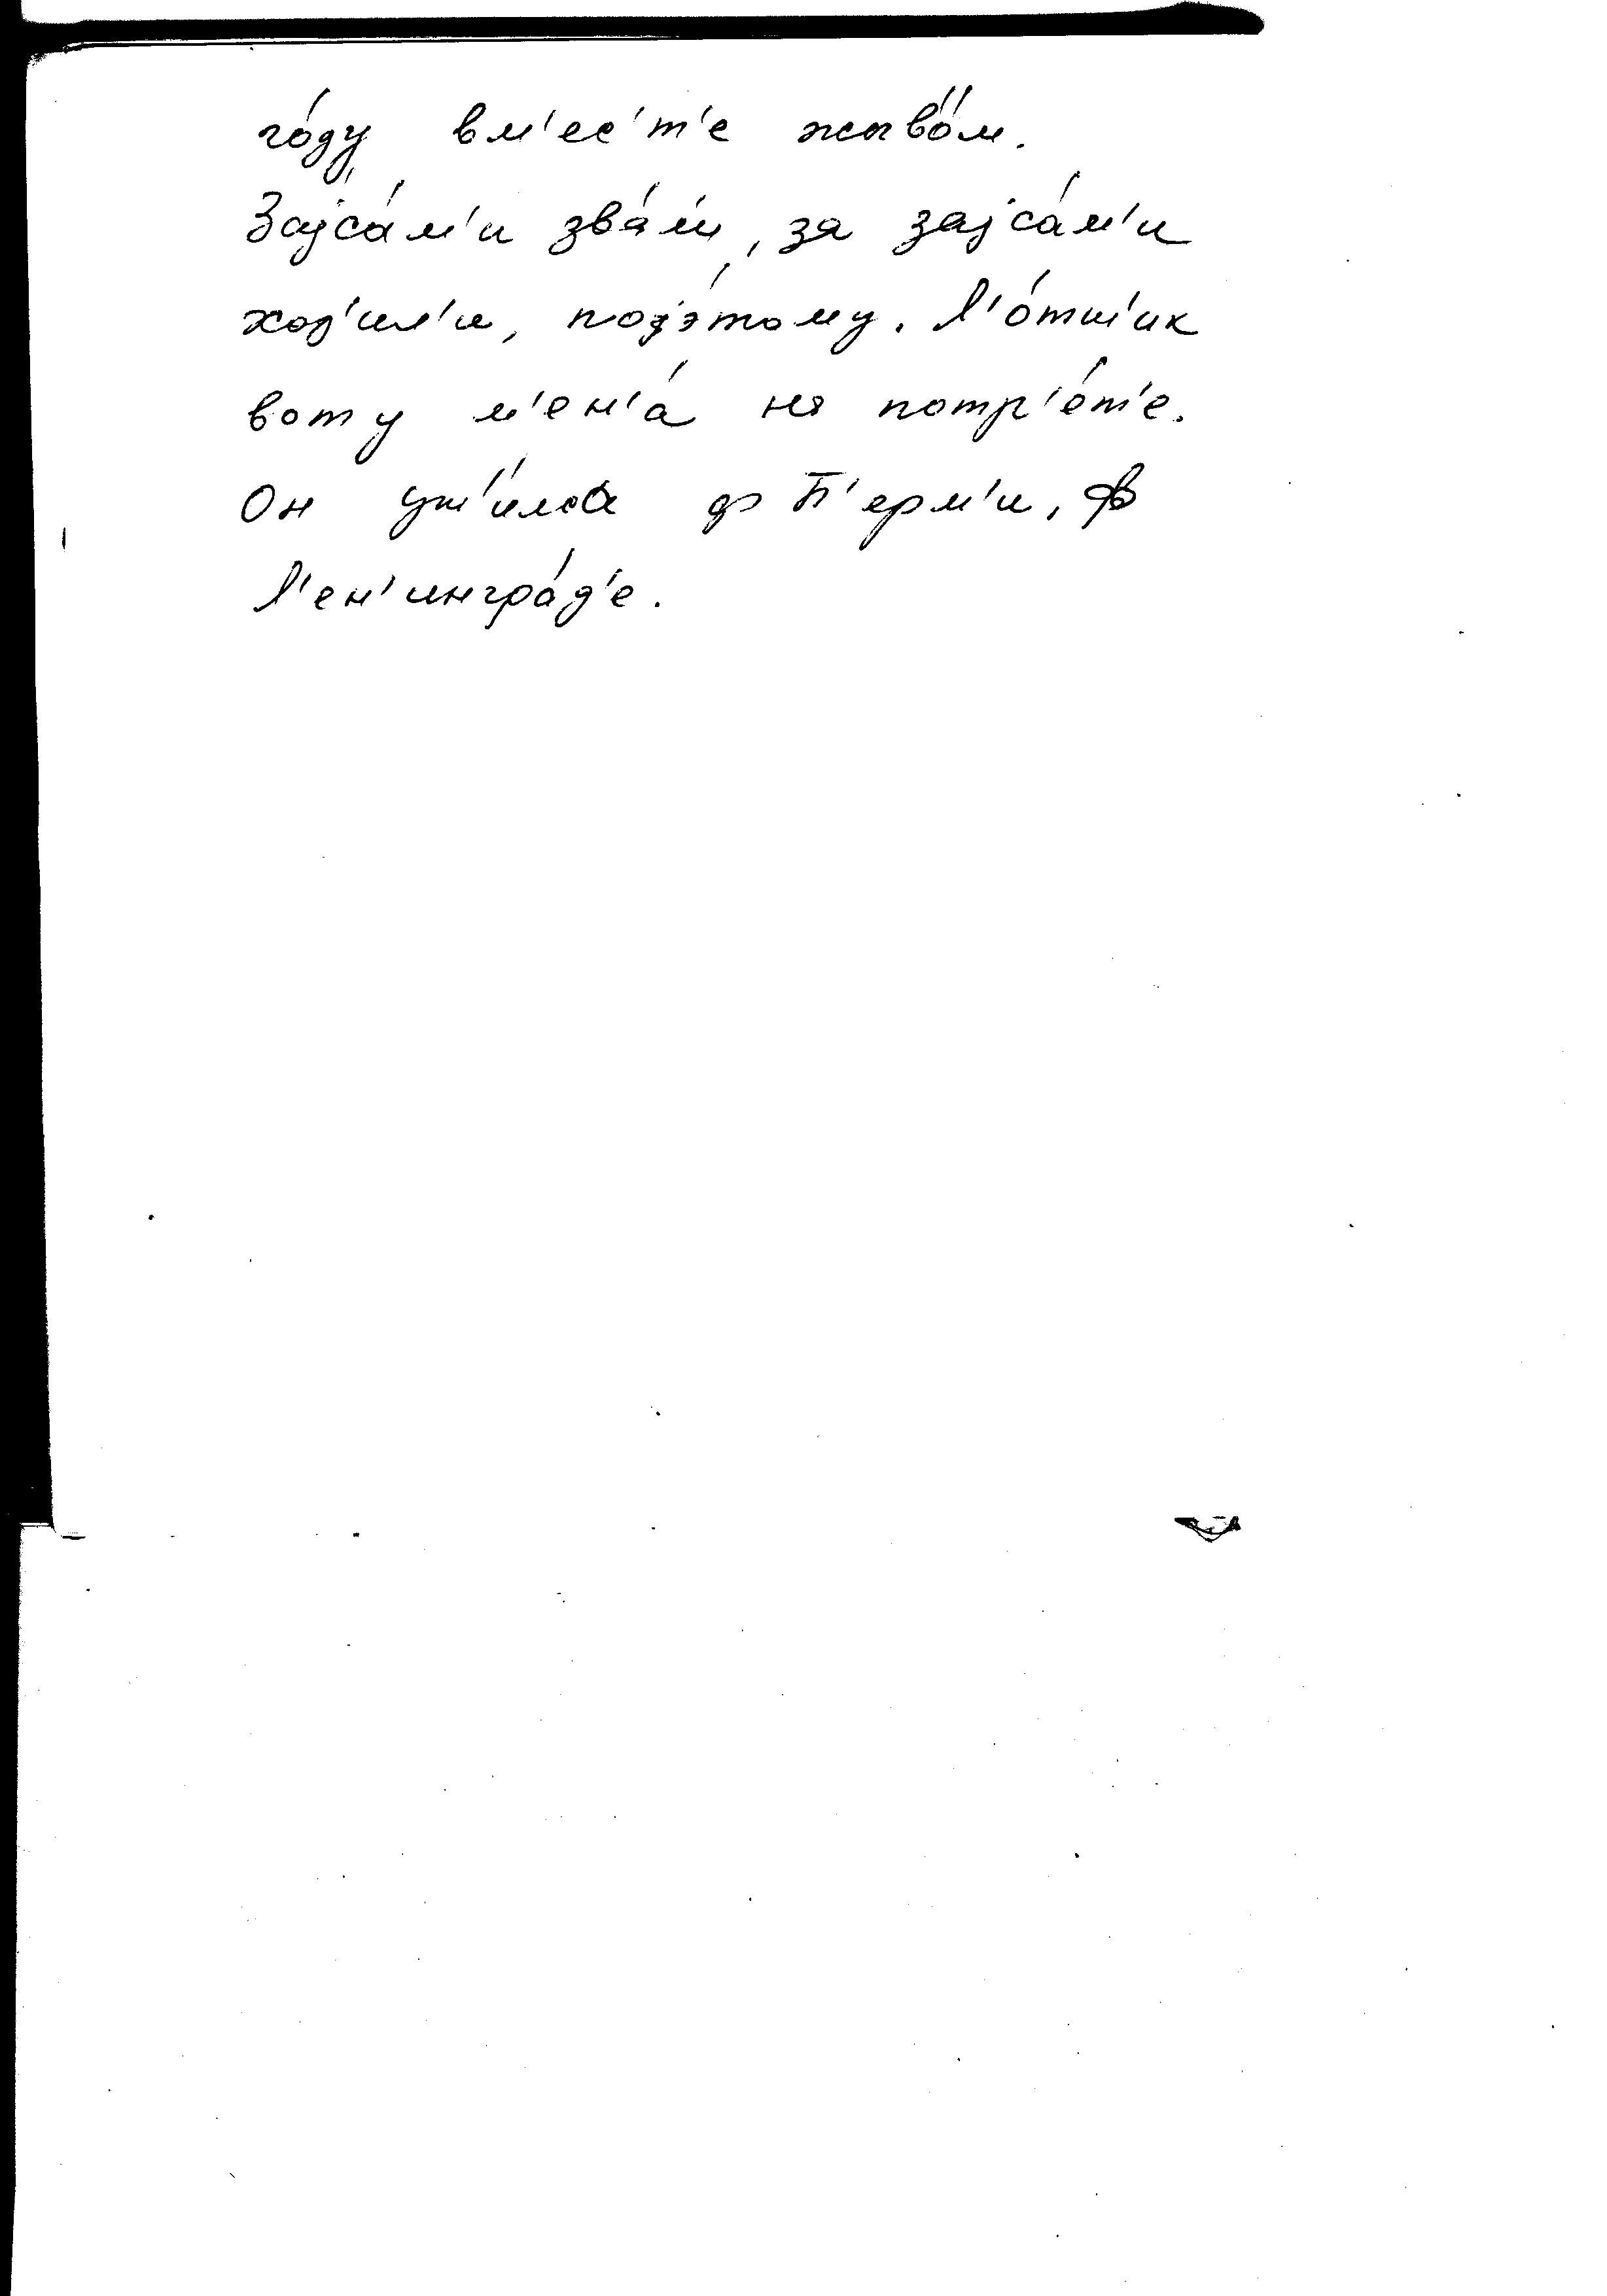 го́ду вм'ес'т'е жыво́м.
Зајса́м'и зва́ли, за зајса́м'и
ход'и́л'и, пој э́тому. Л'о́тш'ик
вот у м'ен'а́ на потр'е́т'е.
Он уш'и́лса ф П'ерм'и, ф
Л'ен'ингра́д'е.